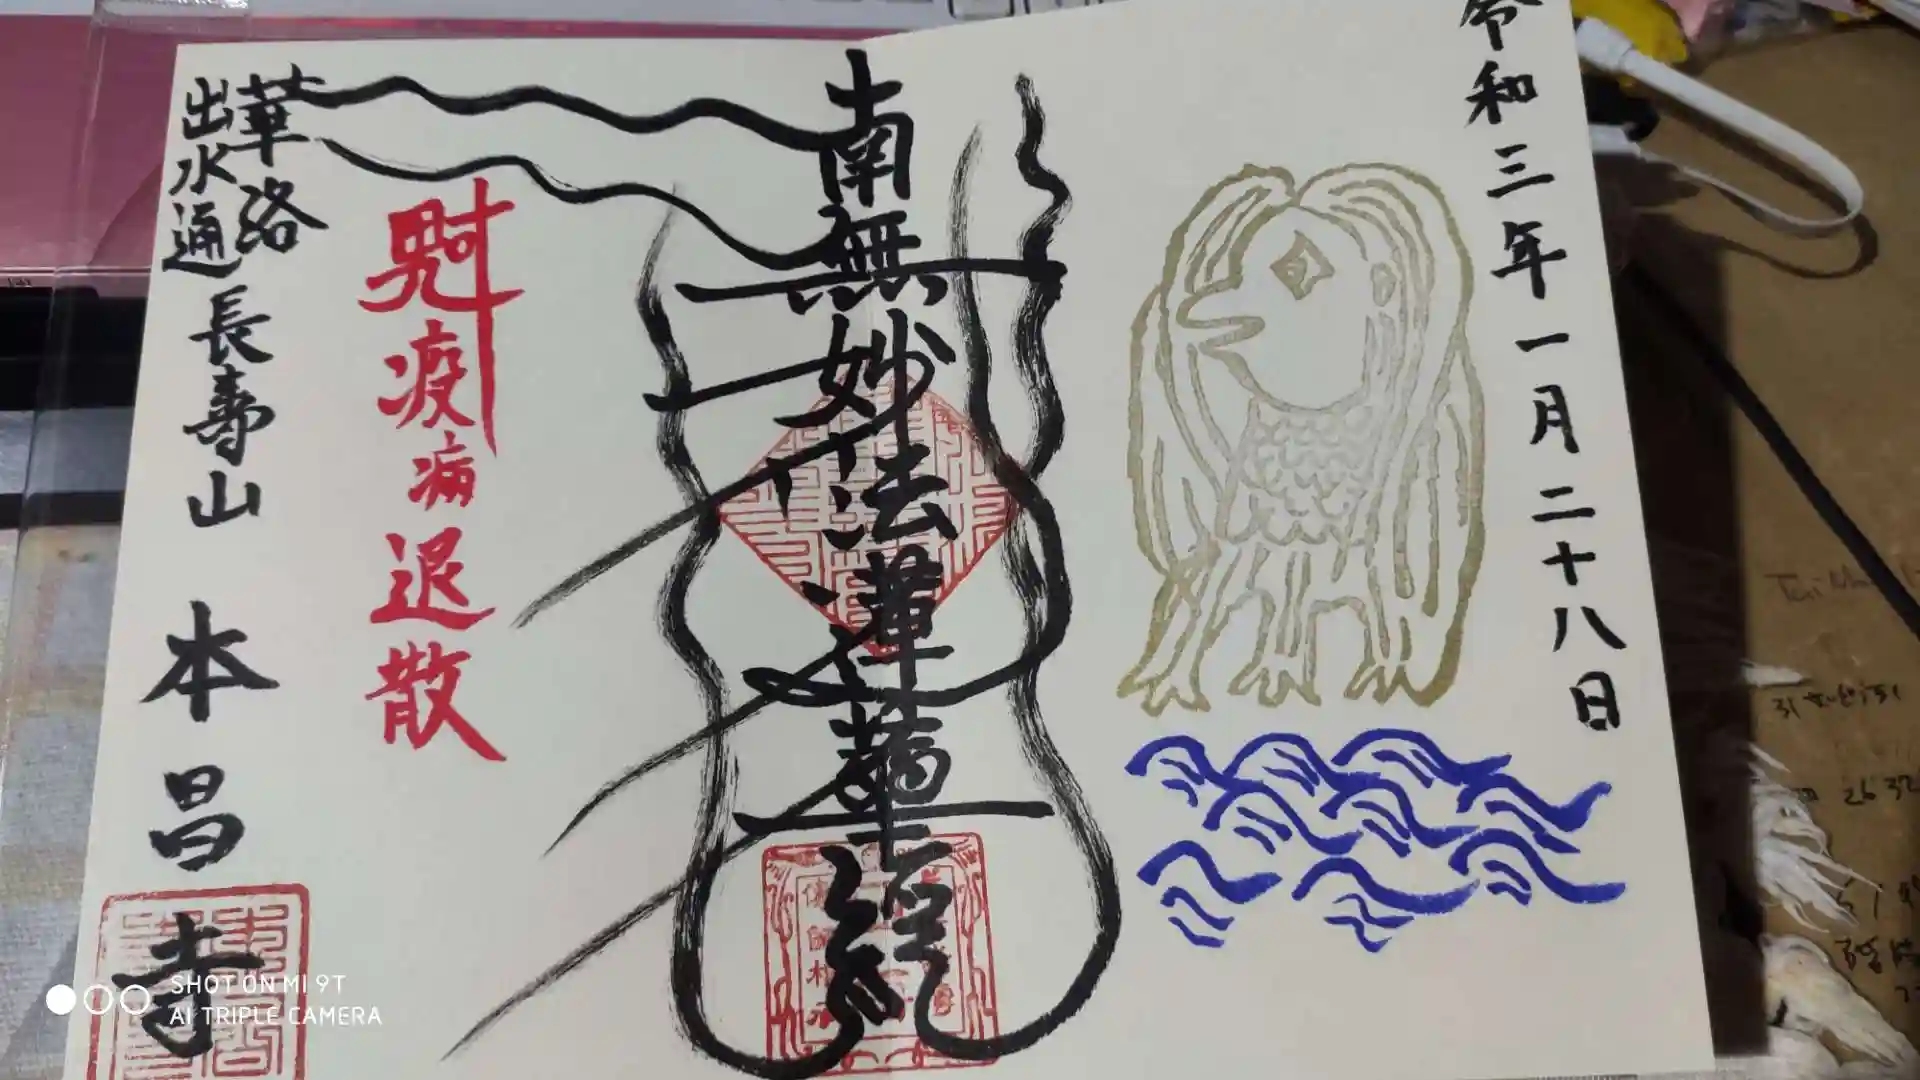 令和三年一月二十八日
南無妙法蓮華経
疫病退散
華洛
出水通 長寿山
本昌寺
SHOT ON MI 9T
AI TRIPLE CAMERA